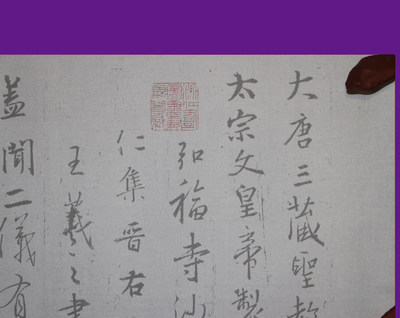 大唐三藏聖教
太宗文皇帝製
弘福寺沙
仁集晉右
王羲之書
蓋聞二儀有